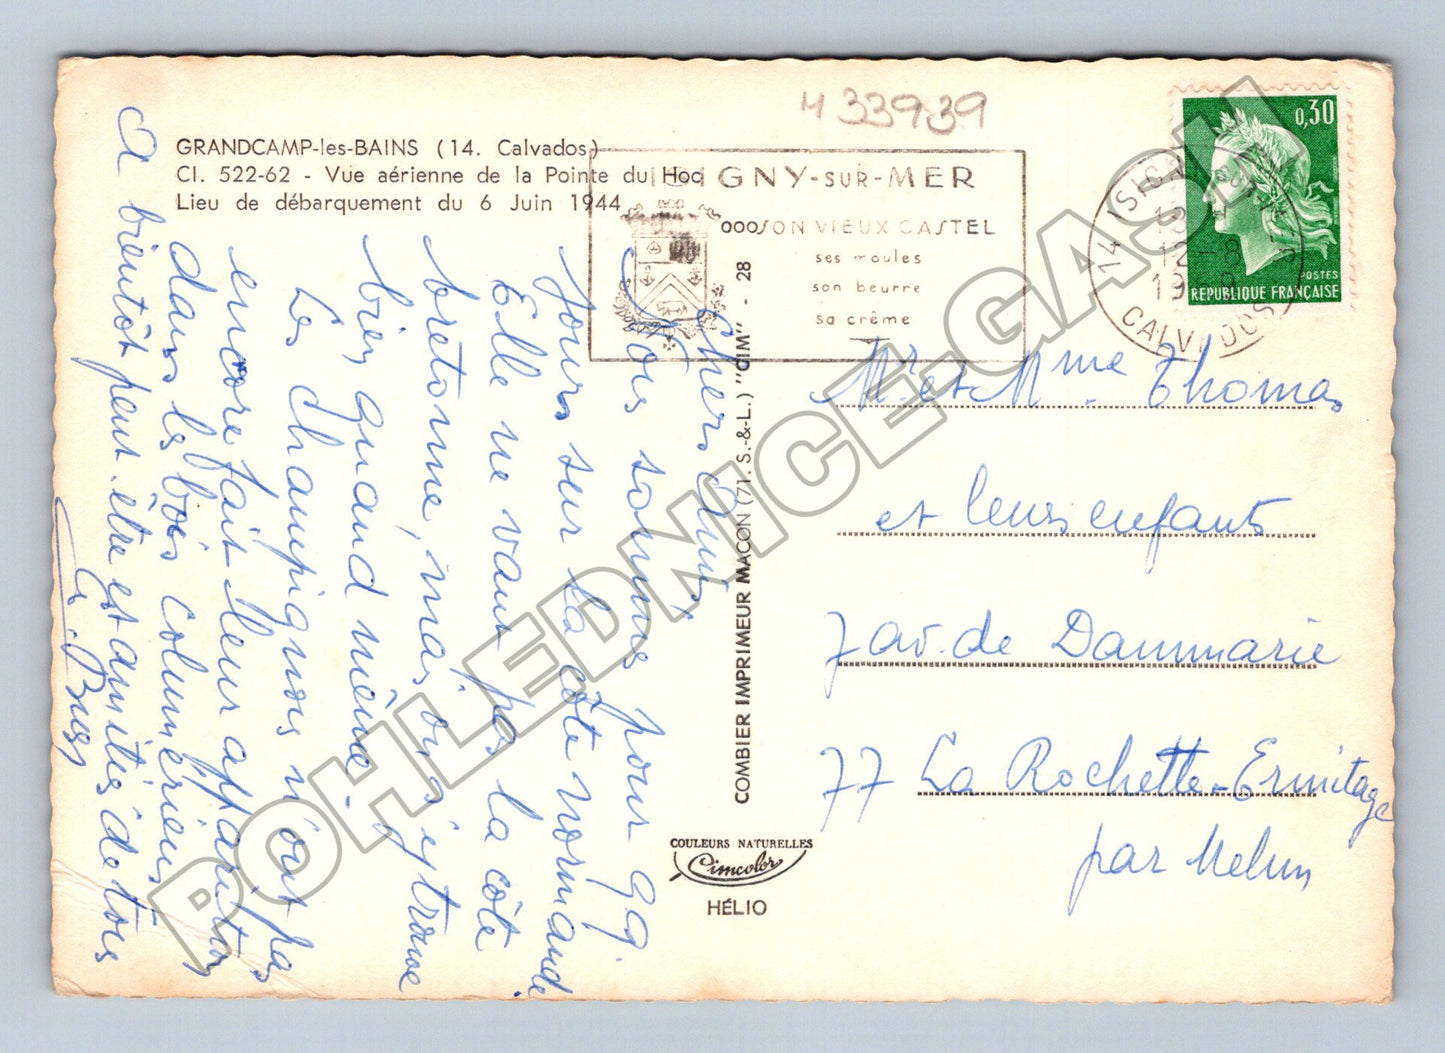 4 33939
GRANDCAMP-les-BAINS (14. Calvados)
CI. 522-62 - Vue aérienne de la Pointe du Hoc
Lieu de débarquement du 6 Juin 1944
ISIGNY-SUR-MER
SON VIEUX CASTEL
ses moules
son beurre
sa crème
14 ISIGNY
CALVADOS
0,30
POSTES
REPUBLIQUE FRANÇAISE
Chers Amis
Nous sommes pour qq.
Jours sur la côte normande
Elle ne vaut pas la côte
bretonne, mais on s'y trouve
bien quand même -
Les champignons n'ont pas
encore fait leur apparition
dans les bois
A bientôt peut-être et amitiés de tous
COMBIER IMPRIMEUR MACON (71. S.-&-L.) "CIM" - 28
Mr et Mme Thomas
et leurs enfants
7 av. de Dammarie
77 La Rochette-Ermitage
par Melun
COULEURS NATURELLES
Cimcolor
HÉLIO
POHLEDNICE-GASH